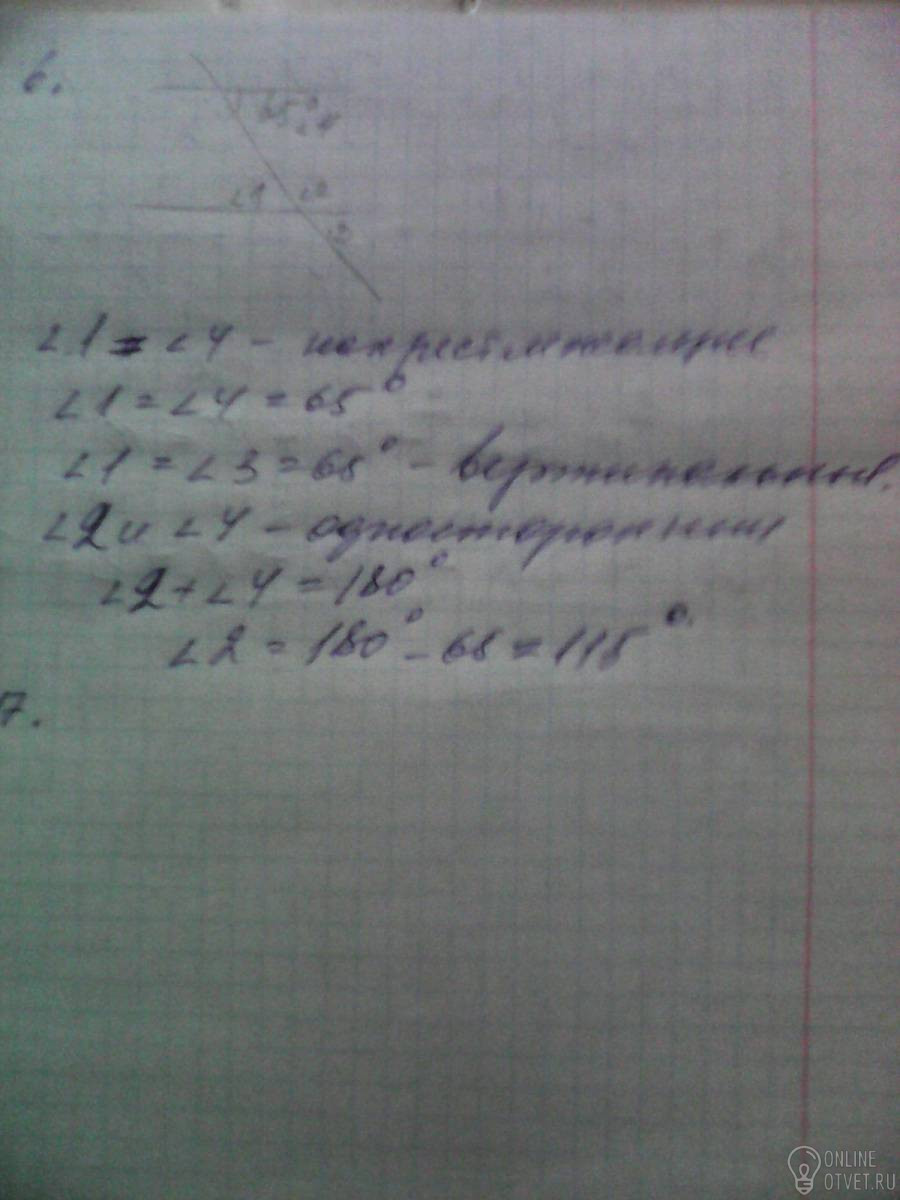 6.
65°
∠4
∠1 ∠2
3
∠1 = ∠4 - накрестлежащие
∠1 = ∠4 = 65°
∠1 = ∠3 = 65° - вертикальные.
∠2 и ∠4 - односторонние
∠2 + ∠4 = 180°
∠2 = 180° - 65 = 115°.
7.
ONLINE
OTVET.RU